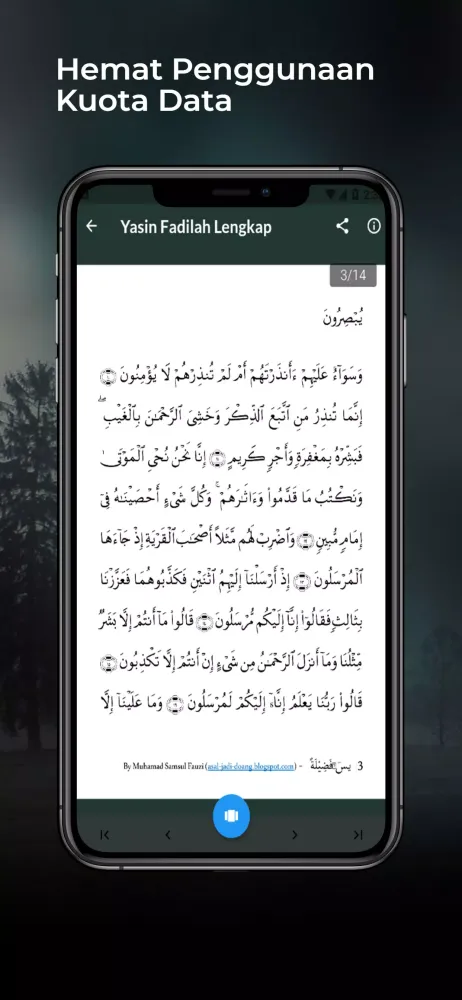 Hemat Penggunaan
Kuota Data
Yasin Fadilah Lengkap
3/14
يُبْصِرُونَ
وَسَوَآءٌ عَلَيْهِمْ ءَأَنذَرْتَهُمْ أَمْ لَمْ تُنذِرْهُمْ لَا يُؤْمِنُونَ ۝
إِنَّمَا تُنذِرُ مَنِ ٱتَّبَعَ ٱلذِّكْرَ وَخَشِىَ ٱلرَّحْمَـٰنَ بِٱلْغَيْبِ ۖ
فَبَشِّرْهُ بِمَغْفِرَةٍ وَأَجْرٍ كَرِيمٍ ۝ إِنَّا نَحْنُ نُحْىِ ٱلْمَوْتَىٰ
وَنَكْتُبُ مَا قَدَّمُوا۟ وَءَاثَـٰرَهُمْ ۚ وَكُلَّ شَىْءٍ أَحْصَيْنَـٰهُ فِىٓ
إِمَامٍ مُّبِينٍ ۝ وَٱضْرِبْ لَهُم مَّثَلًا أَصْحَـٰبَ ٱلْقَرْيَةِ إِذْ جَآءَهَا
ٱلْمُرْسَلُونَ ۝ إِذْ أَرْسَلْنَآ إِلَيْهِمُ ٱثْنَيْنِ فَكَذَّبُوهُمَا فَعَزَّزْنَا
بِثَالِثٍ فَقَالُوٓا۟ إِنَّآ إِلَيْكُم مُّرْسَلُونَ ۝ قَالُوا۟ مَآ أَنتُمْ إِلَّا بَشَرٌ
مِّثْلُنَا وَمَآ أَنزَلَ ٱلرَّحْمَـٰنُ مِن شَىْءٍ إِنْ أَنتُمْ إِلَّا تَكْذِبُونَ ۝
قَالُوا۟ رَبُّنَا يَعْلَمُ إِنَّآ إِلَيْكُمْ لَمُرْسَلُونَ ۝ وَمَا عَلَيْنَآ إِلَّا
By Muhamad Samsul Fauzi (asal-jadi-doang.blogspot.com) - يس فَضِيْلَةٌ 3